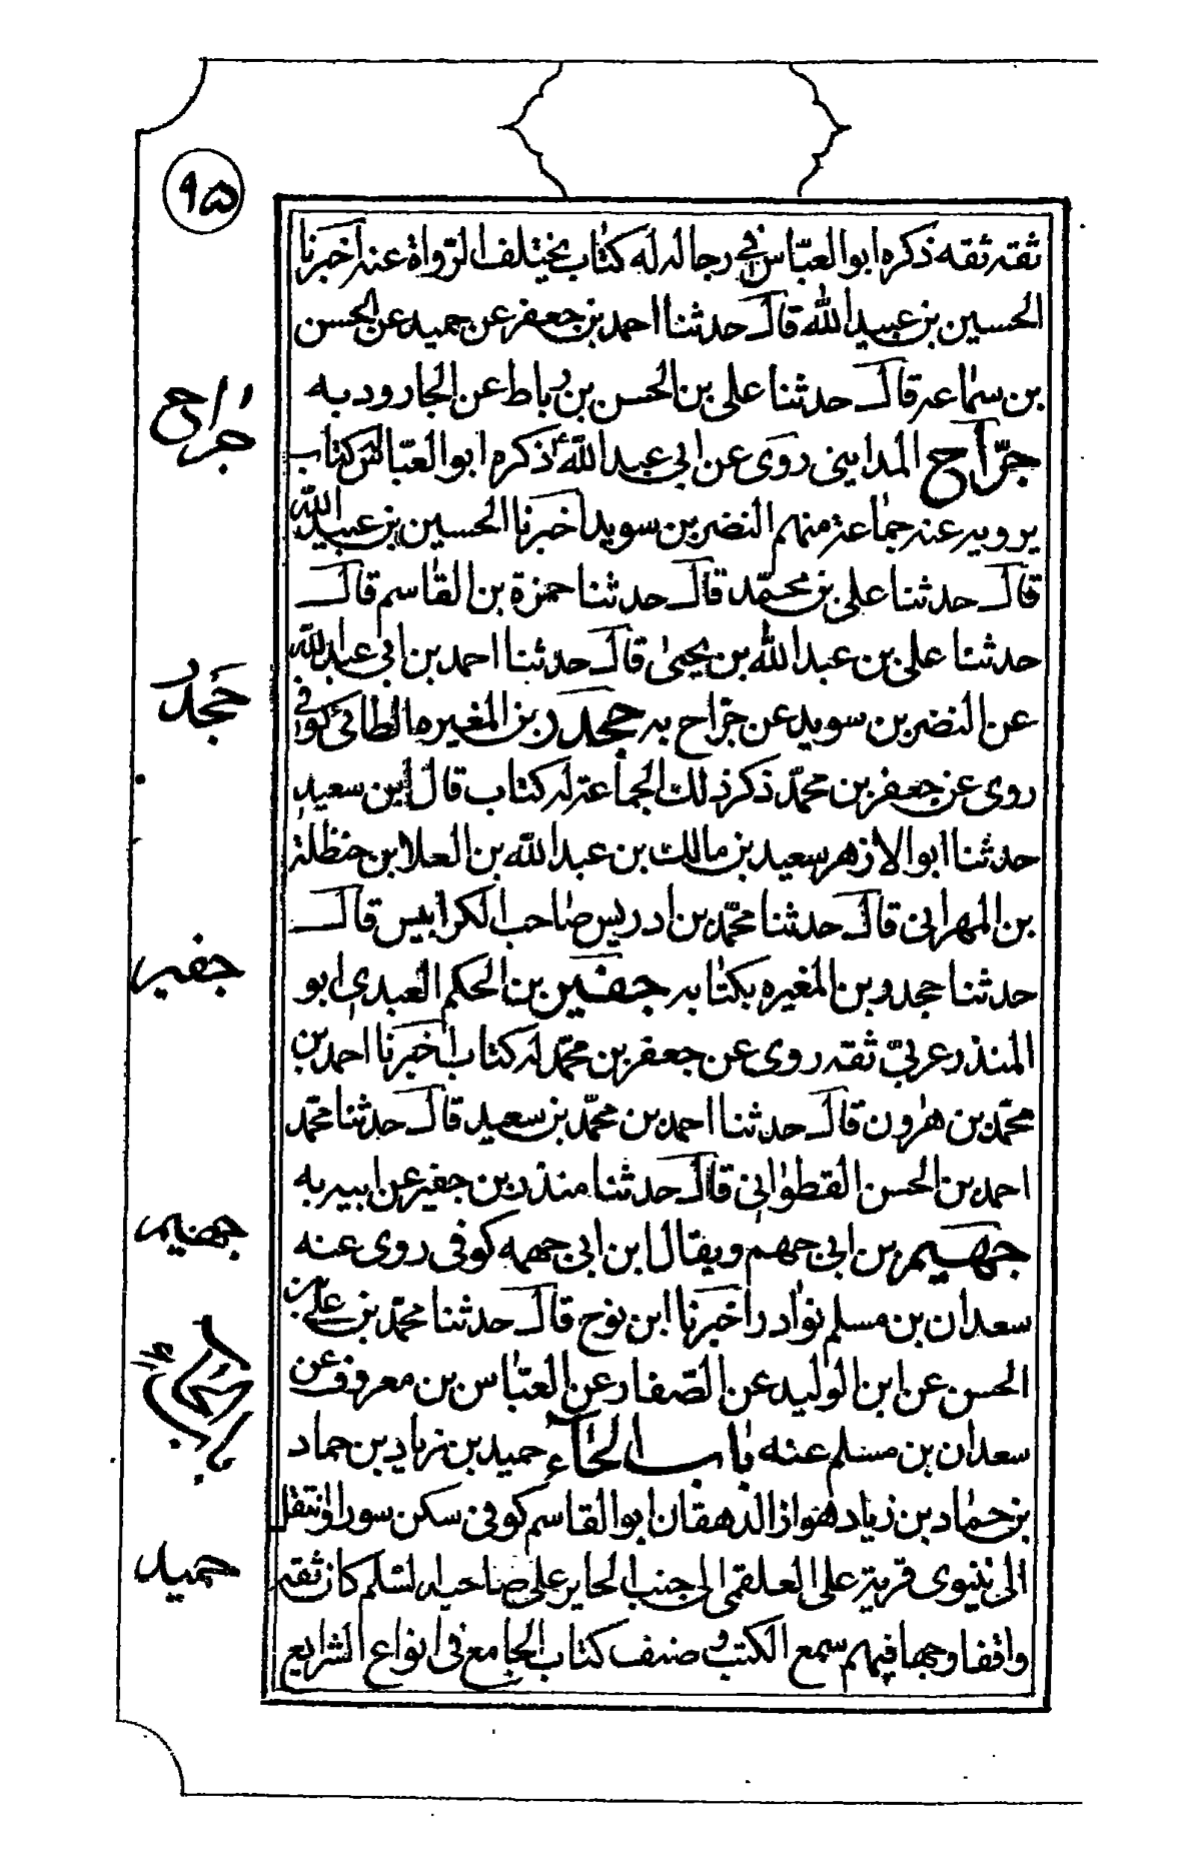 ٩۵
ثقته ثقه ذكره ابو العبّاس في رجاله له كتاب يختلف الرّواة عنه اخبرنا
الحسين بن عبيد الله قال حدثنا احمد بن جعفر عن حميد عن الحسن
بن سماعه قال حدثنا على بن الحسن بن رباط عن الجارود به
جرّاح المداينى روى عن ابى عبد الله ذكره ابو العبّاس كتاب
يرويه عنه جماعة منهم النضر بن سويد اخبرنا الحسين بن عبيد الله
قال حدثنا على بن محمّد قال حدثنا حمزة بن القاسم قال
حدثنا على بن عبد الله بن يحيى قال حدثنا احمد بن ابى عبد الله
عن النضر بن سويد عن جرّاح به جحدر بن المغيره الطائى كوفى
روى عن جعفر بن محمّد ذكر ذلك الجماعة له كتاب قال ابن سعيد
حدثنا ابو الازهر سعيد بن مالك بن عبد الله بن العلا بن حنظلة
بن المهرانى قال حدثنا محمّد بن ادريس صاحب الكرابيس قال
حدثنا جحدر بن المغيره بكتابه جفير بن الحكم العبدى ابو
المنذر عربىّ ثقه روى عن جعفر بن محمّد له كتاب اخبرنا احمد بن
محمّد بن هرون قال حدثنا احمد بن محمّد بن سعيد قال حدثنا محمّد
احمد بن الحسن القطوانى قال حدثنا منذر بن جفير عن ابيه به
جهيم بن ابى جهم ويقال ابن ابى جهمه كوفى روى عنه
سعدان بن مسلم نوادر اخبرنا ابن نوح قال حدثنا محمّد بن على بن
الحسن عن ابن الوليد عن الصّفار عن العبّاس بن معروف عن
سعدان بن مسلم عنه باب الحاء حميد بن زياد بن حماد
بن حماد بن زياد هواز الدهقان ابو القاسم كوفى سكن سورا وانتقل
الى نينوى قرية على العلقمى الى جنب الحاير على صاحبه السلم كان ثقه
واقفا وجها فيهم سمع الكتب و صنف كتاب الجامع فى انواع الشرايع
جراح
جحدر
جفير
جهيم
باب الحاء
حميد